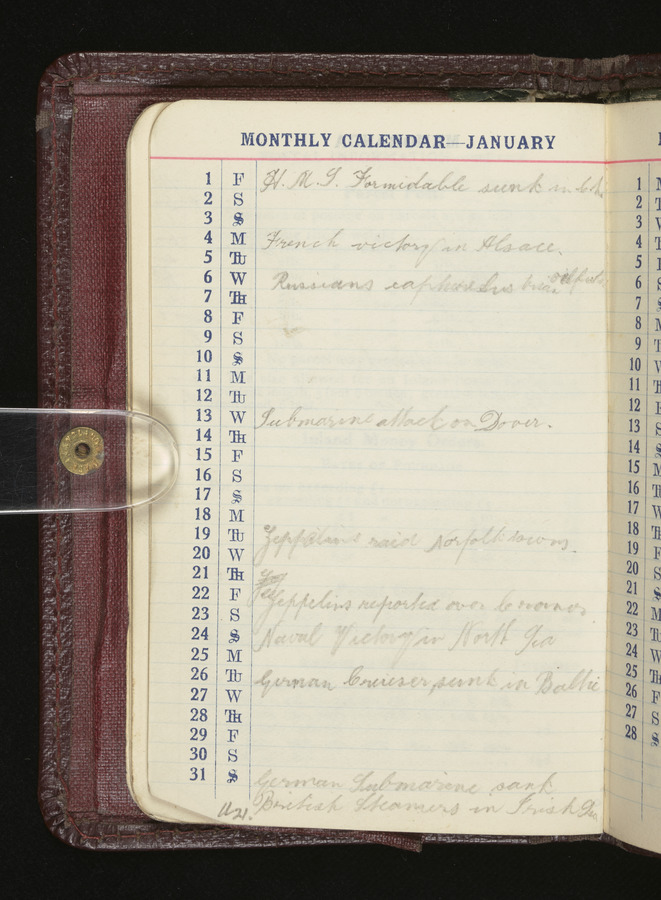 MONTHLY CALENDAR—JANUARY
1 F H.M.S. Formidable sunk in
2 S
3 S
4 M French victory in Alsace.
5 TU
6 W Russians capture oilfields
7 TH
8 F
9 S
10 S
11 M
12 TU
13 W Submarine attack on Dover.
14 TH
15 F
16 S
17 S
18 M
19 TU Zeppelins raid Norfolk towns.
20 W
21 TH
22 F Zeppelins reported over Cromer
23 S
24 S Naval Victory in North Sea
25 M
26 TU German Cruiser sunk in Baltic
27 W
28 TH
29 F
30 S
31 S German Submarine sank
British Steamers in Irish Sea
1
2
3
4
5
6
7
8
9
10
11
12
13
14
15
16
17
18
19
20
21
22
23
24
25
26
27
28